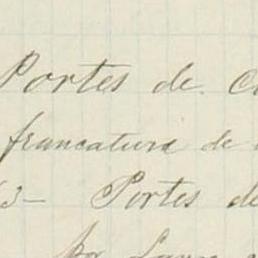 Portes de
francatura de
3— Portes de
por